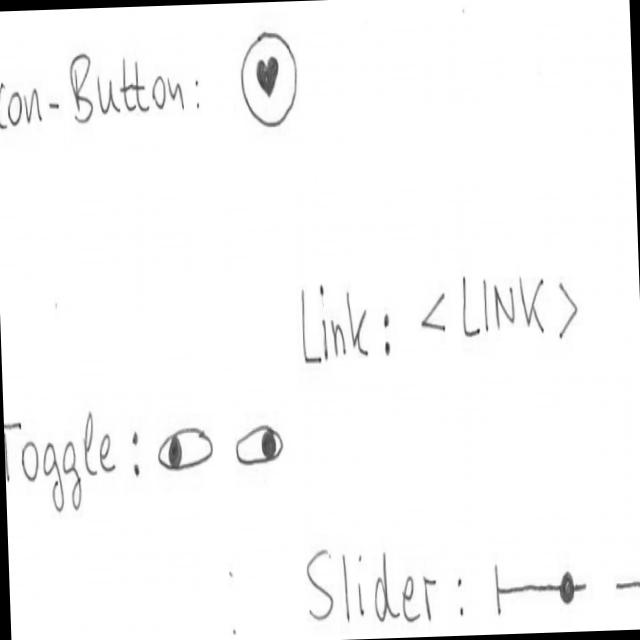 con-Button:
Link: <LINK>
Toggle:
Slider: